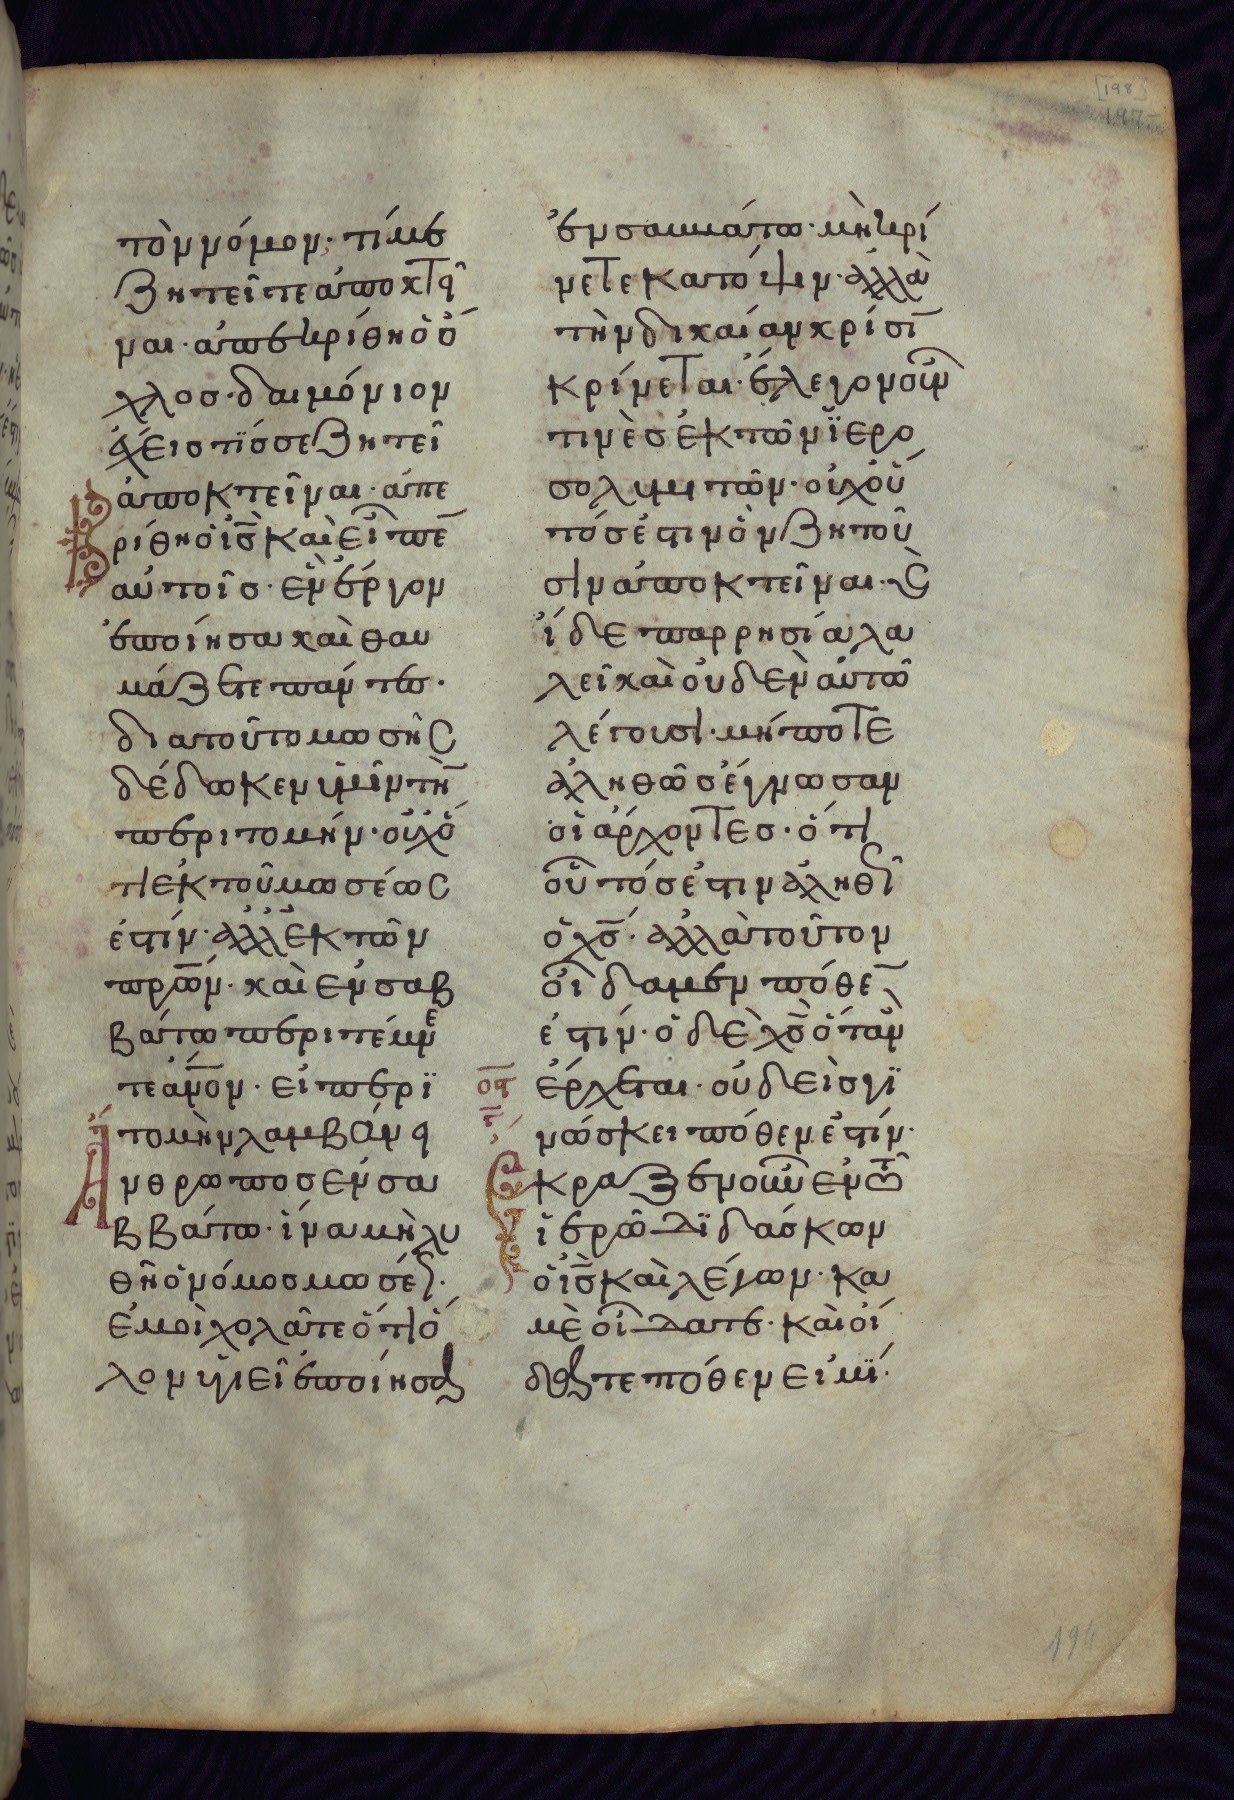 [198]
197
τὸν νόμον· τί με
ζητεῖτε ἀποκτεῖ
ναι· ἀπεκρίθη ὁ ὄ
χλος· δαιμόνιον
ἔχεις τίς σε ζητεῖ
ἀποκτεῖναι· ἀπε
ρίθη ὁ ις̄ καὶ εἶπε̄
αὐτοῖς· ἓν ἔργον
ἐποίησα καὶ θαυ
μάζετε πάντες·
διατοῦτο μωσῆς
δέδωκεν ὑμῖν τὴ̄
περιτομήν· οὐχ ὅ
τι ἐκ τοῦ μωσέως
ἐστίν· ἀλλ ἐκ τῶν
πρ̄ων· καὶ ἐν σαβ
βάτω περιτέμνε
τε ἄν̄ον· εἰ περι
τομὴν λαμβάνει
νθρωπος ἐν σα
Α
ββάτω· ἵνα μὴ λυ
θῆ ὁ νόμος μωσέως·
ἐμοὶ χολᾶτε ὅτι ὅ
λον ὑγιεῖ ἐποίησα
ἐν σαββάτω· μὴ κρί
νετε κατ ὄψιν· ἀλλὰ
τὴν δικαίαν κρίσῑ
κρίνεται· ἔλεγον οὖν
τινὲς ἐκ τῶν ϊερο
σολυμιτῶν· οὐχ οὗ
τός ἐστιν ὃν ζητοῦ
σιν ἀποκτεῖναι· καὶ
ἴδε παρρησία λα
λεῖ καὶ οὐδὲν αὐτῶ
λέγουσι· μήποτε
ἀληθῶς ἔγνωσαν
οἱ ἄρχοντες· ὅτι
οὗτός ἐστιν ἀληθῶς
ὁ χς̄· ἀλλὰ τοῦτον
οἴδαμεν πόθε̄
ἐστίν· ὁ δὲ χς̄ ὅταν
ἔρχεται· οὐδεὶς γι
νώσκει πόθεν ἐστίν·
κραζεν οὖν ἐν τῶ
Ε
ἱερῶ διδάσκων
ὁ ις̄ καὶ λέγων· κα
μὲ οἴδατε· καὶ οἴ
δατε πόθεν εἰμί·
194